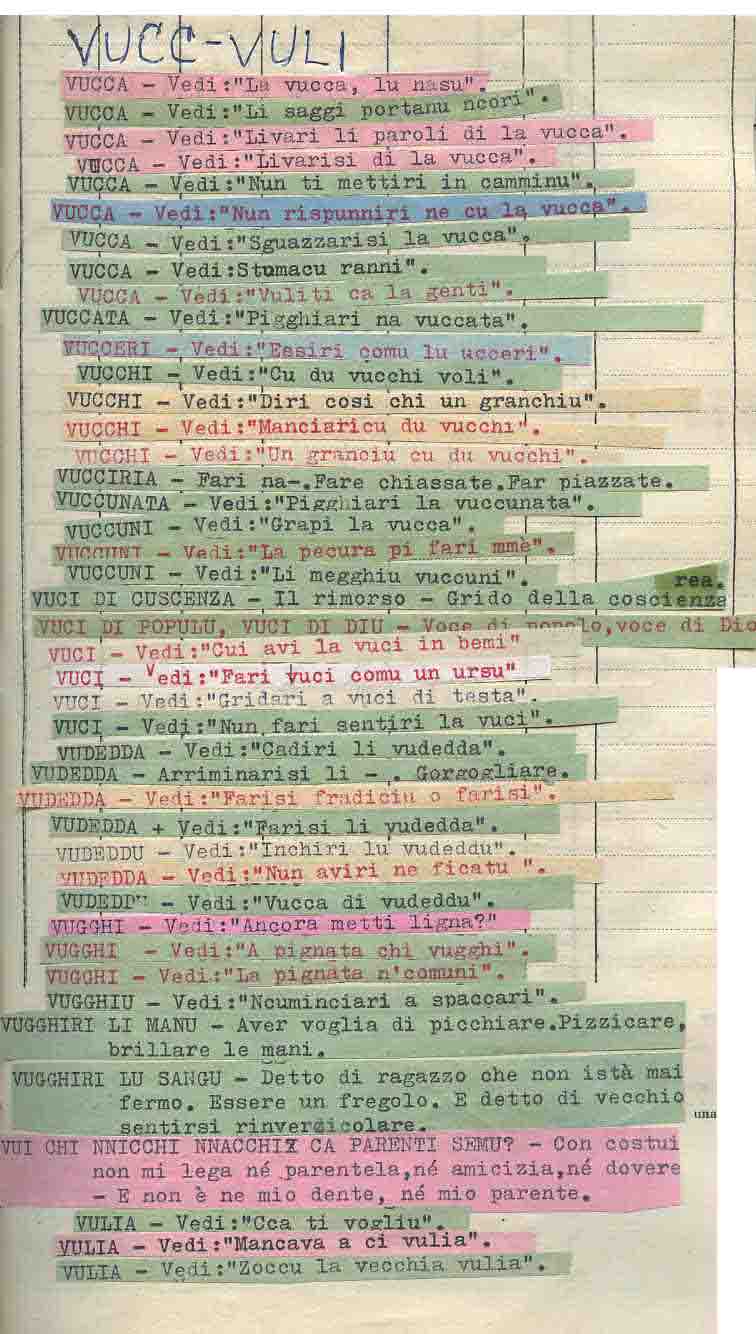 VUCC-VULI
VUCCA - Vedi:"La vucca, lu nasu".
VUCCA - Vedi:"Li saggi portanu ncori".
VUCCA - Vedi:"Livari li paroli di la vucca".
VUCCA - Vedi:"Livarisi di la vucca".
VUCCA - Vedi:"Nun ti mettiri in camminu".
VUCCA - Vedi:"Nun rispunniri ne cu la vucca".
VUCCA - Vedi:"Sguazzarisi la vucca".
VUCCA - Vedi:Stumacu ranni".
VUCCA - Vedi:"Vuliti ca la genti".
VUCCATA - Vedi:"Pigghiari na vuccata".
VUCCERI - Vedi:"Essiri comu lu ucceri".
VUCCHI - Vedi:"Cu du vucchi voli".
VUCCHI - Vedi:"Diri cosi chi un granchiu".
VUCCHI - Vedi:"Manciaricu du vucchi".
VUCCHI - Vedi:"Un granciu cu du vucchi".
VUCCIRIA - Fari na-.Fare chiassate.Far piazzate.
VUCCUNATA - Vedi:"Pigghiari la vuccunata".
VUCCUNI - Vedi:"Grapi la vucca".
VUCCUNI - Vedi:"La pecura pi fari mmè".
VUCCUNI - Vedi:"Li megghiu vuccuni".
rea.
VUCI DI CUSCENZA - Il rimorso - Grido della coscienza
VUCI DI POPULU, VUCI DI DIU - Voce di popolo,voce di Dio
VUCI - Vedi:"Cui avi la vuci in bemi"
VUCI - Vedi:"Fari vuci comu un ursu"
VUCI - Vedi:"Gridari a vuci di testa".
VUCI - Vedi:"Nun fari sentiri la vuci".
VUDEDDA - Vedi:"Cadiri li vudedda".
VUDEDDA - Arriminarisi li - . Gorgogliare.
VUDEDDA - Vedi:"Farisi fradiciu o farisi".
VUDEDDA + Vedi:"Farisi li vudedda".
VUDEDDU - Vedi:"Inchiri lu vudeddu".
VUDEDDA - Vedi:"Nun aviri ne ficatu ".
VUDEDDU - Vedi:"Vucca di vudeddu".
VUGGHI - Vedi:"Ancora metti ligna?"
VUGGHI - Vedi:"A pignata chi vugghi".
VUGGHI - Vedi:"La pignata n'comuni".
VUGGHIU - Vedi:"Ncuminciari a spaccari".
VUGGHIRI LI MANU - Aver voglia di picchiare.Pizzicare,
brillare le mani.
VUGGHIRI LU SANGU - Detto di ragazzo che non istà mai
fermo. Essere un fregolo. E detto di vecchio
una
sentirsi rinverdicolare.
VUI CHI NNICCHI NNACCHIX CA PARENTI SEMU? - Con costui
non mi lega né parentela,né amicizia,né dovere
- E non è ne mio dente, né mio parente.
VULIA - Vedi:"Cca ti vogliu".
VULIA - Vedi:"Mancava a ci vulia".
VULIA - Vedi:"Zoccu la vecchia vulia".